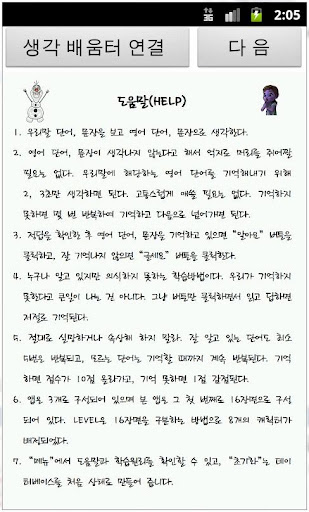 3G 2:05
생각 배움터 연결
다 음
도움말(HELP)
1. 우리말 단어, 문장을 보고 영어 단어, 문장으로 생각한다.
2. 영어 단어, 문장이 생각나지 않는다고 해서 억지로 머리를 쥐어짤
필요는 없다. 우리말에 해당하는 영어 단어를 기억해내기 위해
2, 3초만 생각하면 된다. 고통스럽게 애쓸 필요는 없다. 기억하지
못하면 몇 번 반복하여 기억하고 다음으로 넘어가면 된다.
3. 정답을 확인한 후 영어 단어, 문장을 기억하고 있으면 "알아요" 버튼을
클릭하고, 잘 기억나지 않으면 "글쎄요" 버튼을 클릭한다.
4. 누구나 알고 있지만 의식하지 못하는 학습방법이다. 우리가 기억하지
못한다고 큰일이 나는 것 아니다. 그냥 버튼만 클릭하면서 읽고 답하면
저절로 기억된다.
5. 절대로 실망하거나 속상해 하지 말라. 잘 알고 있는 단어도 최소
5번은 반복되고, 모르는 단어는 기억할 때까지 계속 반복된다. 기억
하면 점수가 10점 올라가고, 기억 못하면 1점 감점된다.
6. 앱은 3개로 구성되어 있으며 본 앱은 그 첫 번째로 16장면으로 구성
되어 있다. LEVEL은 16장면을 구분하는 방법으로 8개의 캐릭터가
배정되었다.
7. "메뉴"에서 도움말과 학습원리를 확인할 수 있고, "초기화"는 데이
터베이스를 처음 상태로 만들어 줍니다.